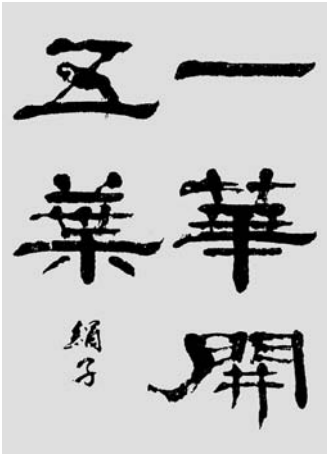 一華開
五葉
絹子